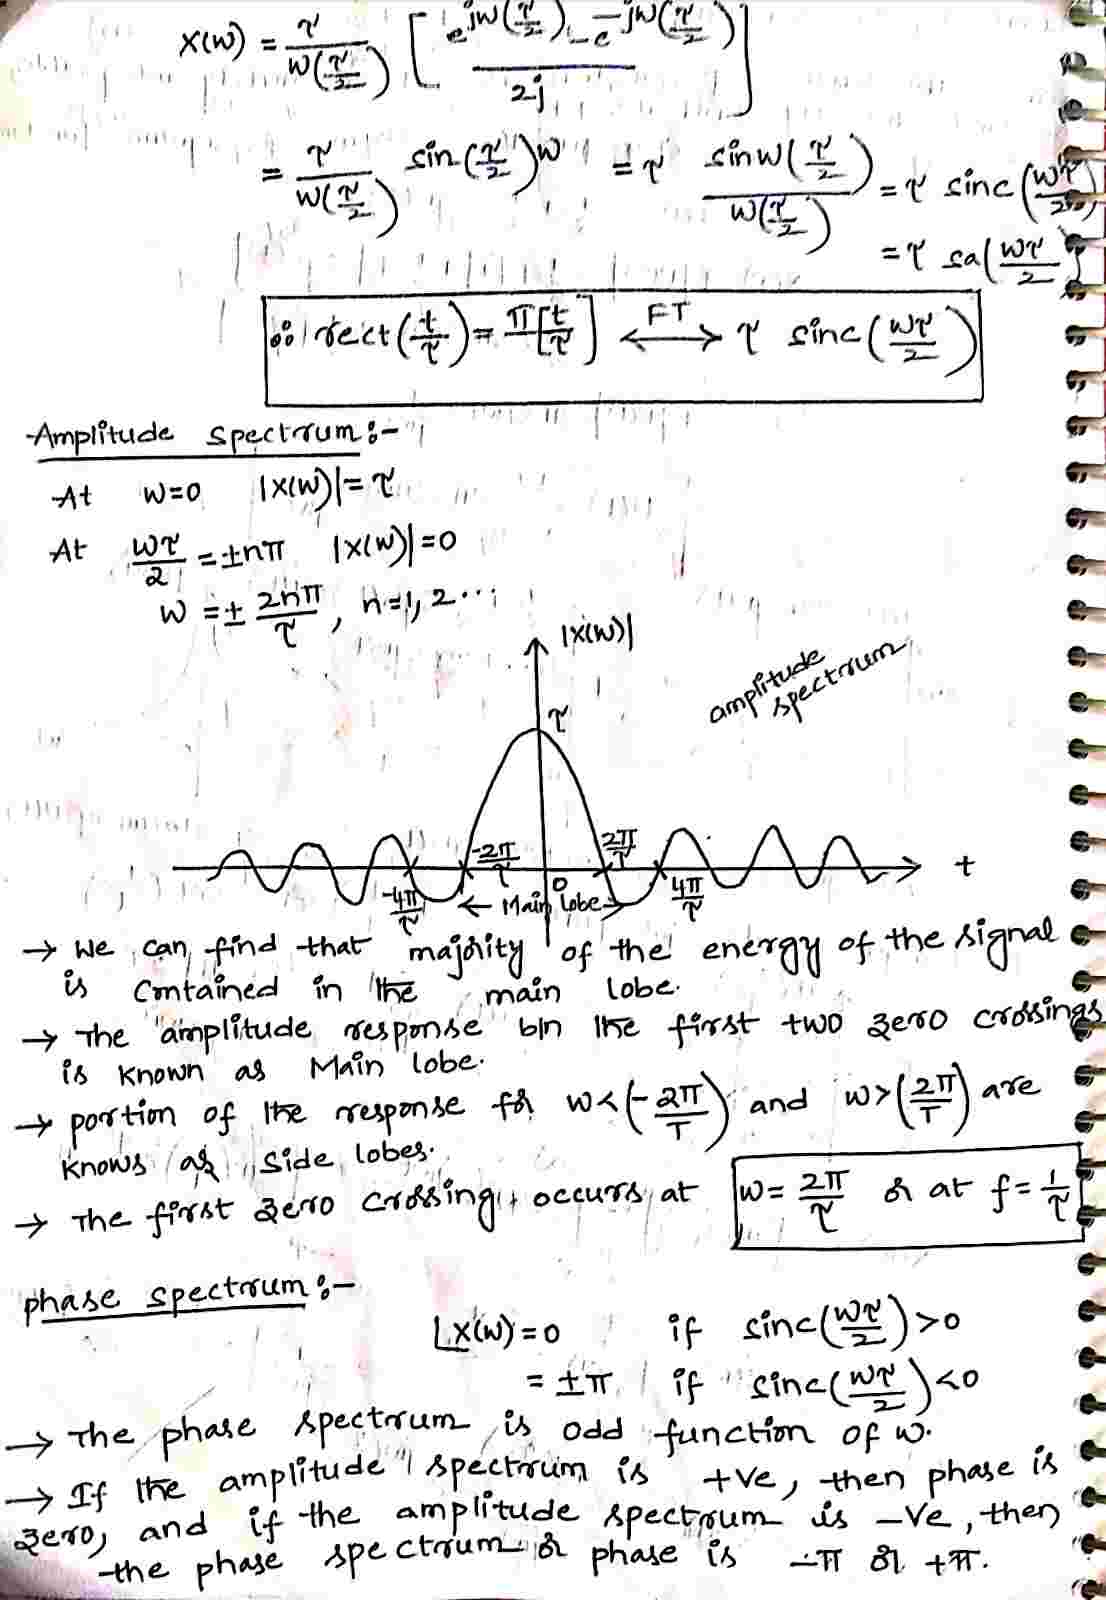 X(w) = τ/w(τ/2) [ (e^jw(τ/2) - e^-jw(τ/2))/2j ]
= τ/w(τ/2) sin(τ/2)w = τ sinw(τ/2)/w(τ/2) = τ sinc(wτ/2)
= τ sa(wτ/2)
∴ rect(t/τ) = π[t/τ] ←FT→ τ sinc(wτ/2)
Amplitude spectrum:-
At w=0 |X(w)|= τ
At wτ/2 = ±nπ |X(w)|=0
w = ± 2nπ/τ, n=1, 2...
|X(w)|
amplitude
spectrum
τ
-2π/τ 2π/τ
0
t
-4π/τ ← Main lobe → 4π/τ
→ We can find that majority of the energy of the signal
is contained in the main lobe.
→ The amplitude response b/n the first two zero crossings
is known as Main lobe.
→ portion of the response for w<(-2π/T) and w>(2π/T) are
knows as side lobes.
→ The first zero crossing occurs at w= 2π/τ or at f= 1/τ
phase spectrum:-
∠X(w)=0 if sinc(wτ/2)>0
= ±π if sinc(wτ/2)<0
→ The phase spectrum is odd function of w.
→ If the amplitude spectrum is +ve, then phase is
zero, and if the amplitude spectrum is -ve, then
the phase spectrum or phase is -π or +π.